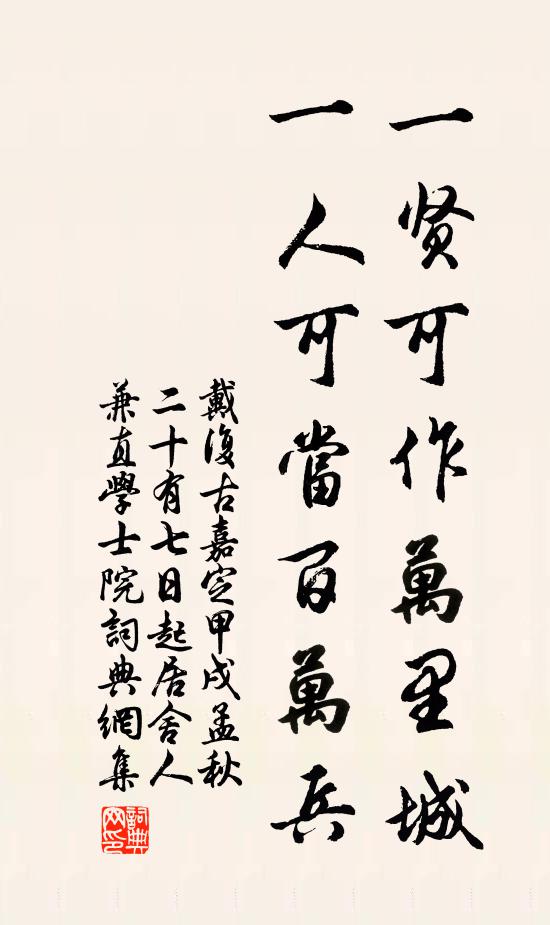 一贤可作萬里城
一人可當百萬兵
戴復古嘉定甲戌孟秋
二十有七日起居舍人
兼直學士院詞典網集
詞典網印